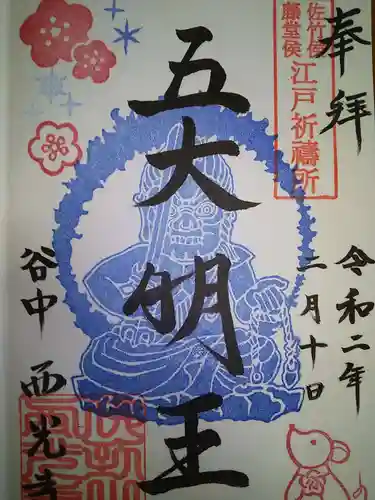 奉拝
佐竹侯
藤堂侯
江戸祈禱所
五大明王
令和二年
二月十日
谷中 西光寺